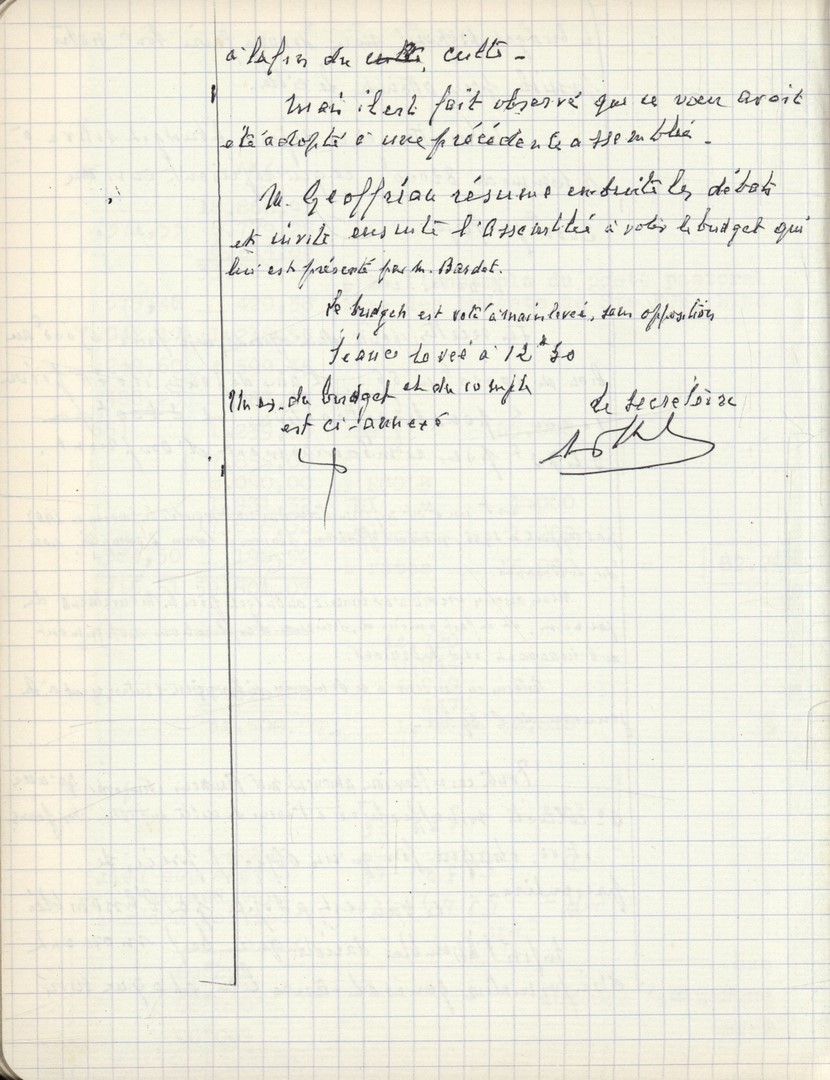 à la fin du culte, culte -
Mais il est fait observé que ce vœu avait
été adopté à une précédente assemblée.
M. Geoffréau résume ensuite les débats
et invite ensuite l'Assemblée à voter le budget qui
lui est présenté par M. Bardet.
Le budget est voté à main levée, sans opposition
Séance levée à 12h30
Un ex. du budget et du compte
est ci-annexé
Le secrétaire